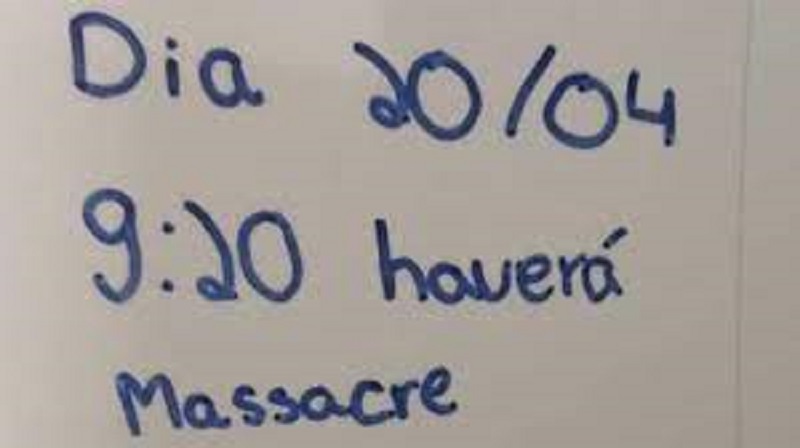 Dia 20/04
9:20 haverá
Massacre